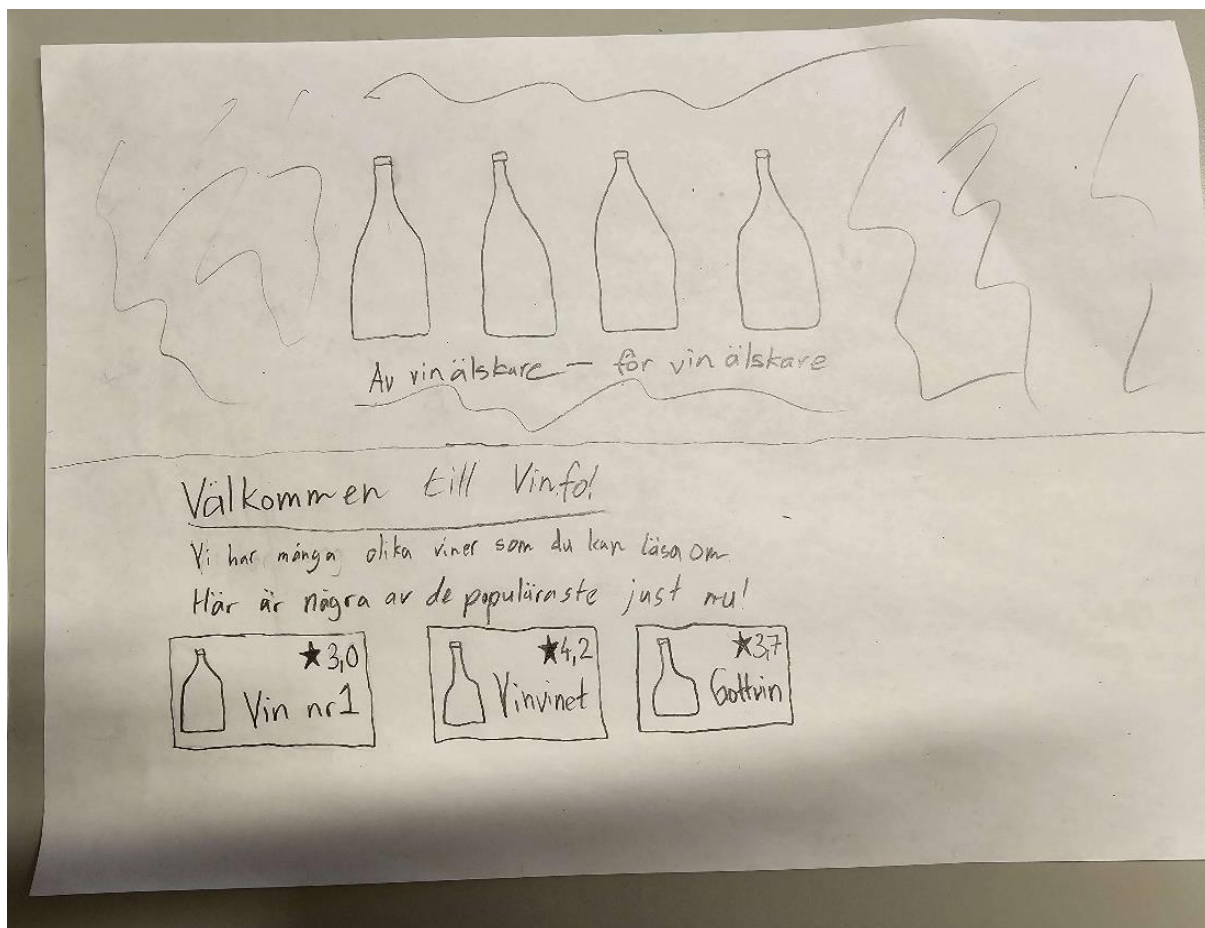 Av vinälskare — för vin älskare
Välkommen till Vinfo!
Vi har många olika viner som du kan läsa om
Här är några av de populäraste just nu!
★3,0
Vin nr1
★4,2
Vinvinet
★3,7
Gottvin